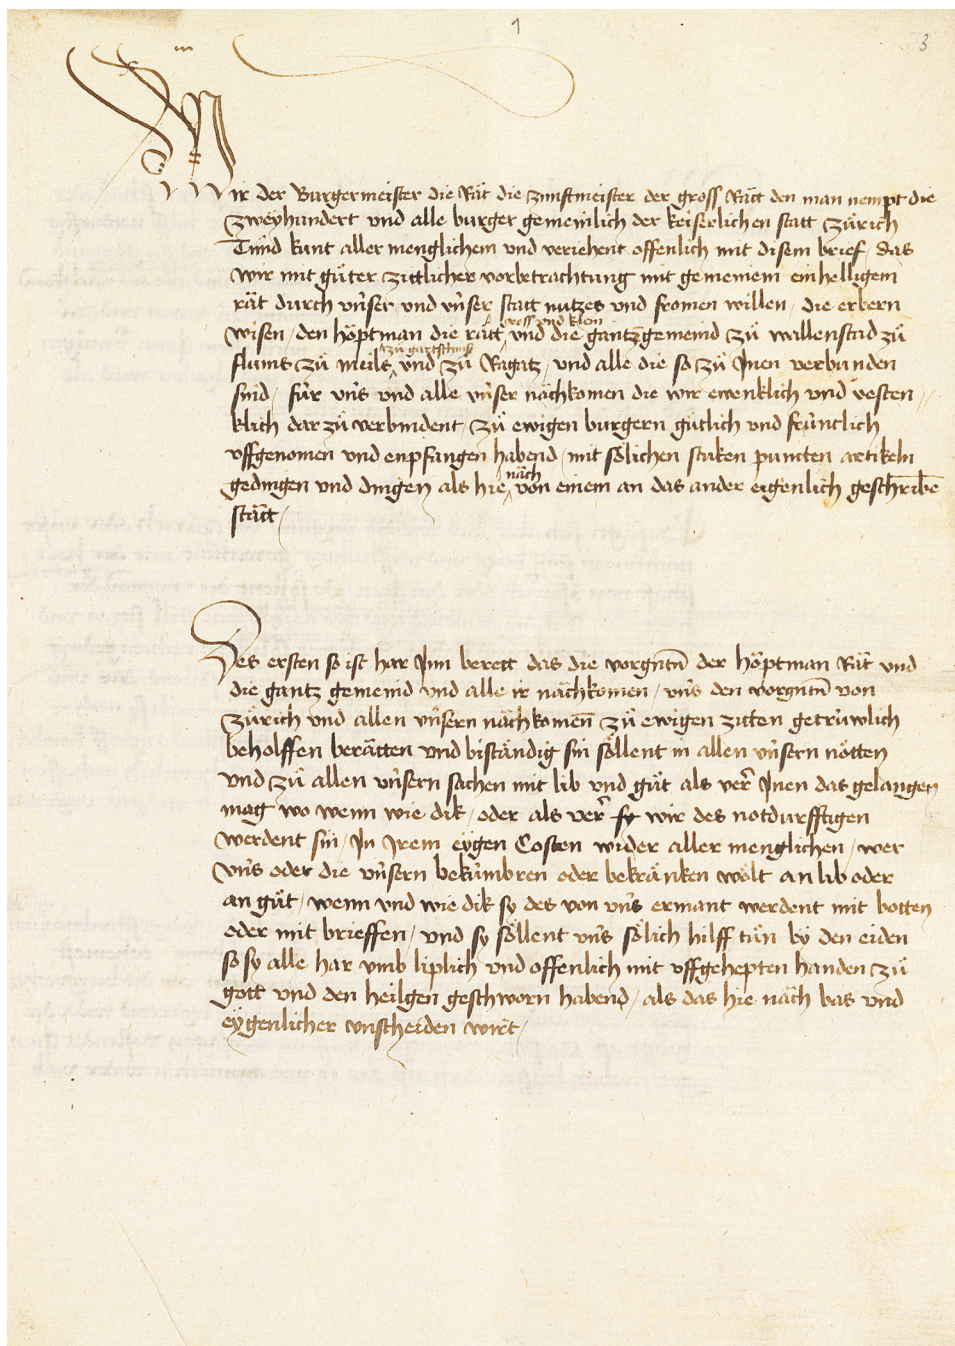 1
3
Wir der Burgermeister die Rät die zunftmeister der gross Rätt den man nempt die
zweyhundert vnd alle burger gemeinlich der keiserlichen statt zürich
Tuͦnd kunt aller menglichem vnd veriehent offenlich mit disem brief / das
wir mit guͦter zittlicher vorbetrachtung mit gemeinem einhelligem
rät durch vnser vnd vnser statt nutzes vnd fromen willen / die erbern
wisen / den höptman die rätt gross vnd klein vnd die gantz gemeind zuͦ wallenstad zuͦ
flums zuͦ meils zuͦ vnd zuͦ Ragatz / vnd alle die so zuͦ Jnen verbunden
sind / für vns vnd alle vnser nächkomen die wir ewenklich vnd vesten //
klich dar zuͦ verbindent / zuͦ ewigen burgern guͤtlich vnd früntlich
vffgenomen vnd enpfangen habend / mit sölichen stuken puncten artikeln
gedingen vnd dingen als hie näch von einem an das ander eigenlich geschribē
stätt /
Des ersten so ist har Jnn berett das die vorgntn̄ der höptman Rät vnd
die gantz gemeind vnd alle ir nächkomen / vns den vorgntn̄ von
zürich vnd allen vnsern nächkomen̄ zuͦ ewigen zitten getrüwlich
beholffen berätten vnd biständig sin söllent in allen vnsern nötten
vnd zuͦ allen vnsern sachen mit lib vnd guͦt als ver̄ Jnen das gelangen
mag wo wenn wie dik / oder als ver̄ sy wir des notdurfftigen
werdent sin / Jn Jrem eygen Costen wider aller menglichen / wer
vns oder die vnsern bekümbren oder bekränken wölt an lib oder
an guͦt / wenn vnd wie dik sy des von vns ermant werdent mit botten
oder mit brieffen / vnd sy söllent vns sölich hilff tuͦn by den eiden
so sy alle har vmb liplich vnd offenlich mit vffgehepten handen zuͦ
gott vnd den heilgen geschworn habend / als das hie näch bas vnd
eygenlicher vnscheiden wirt /